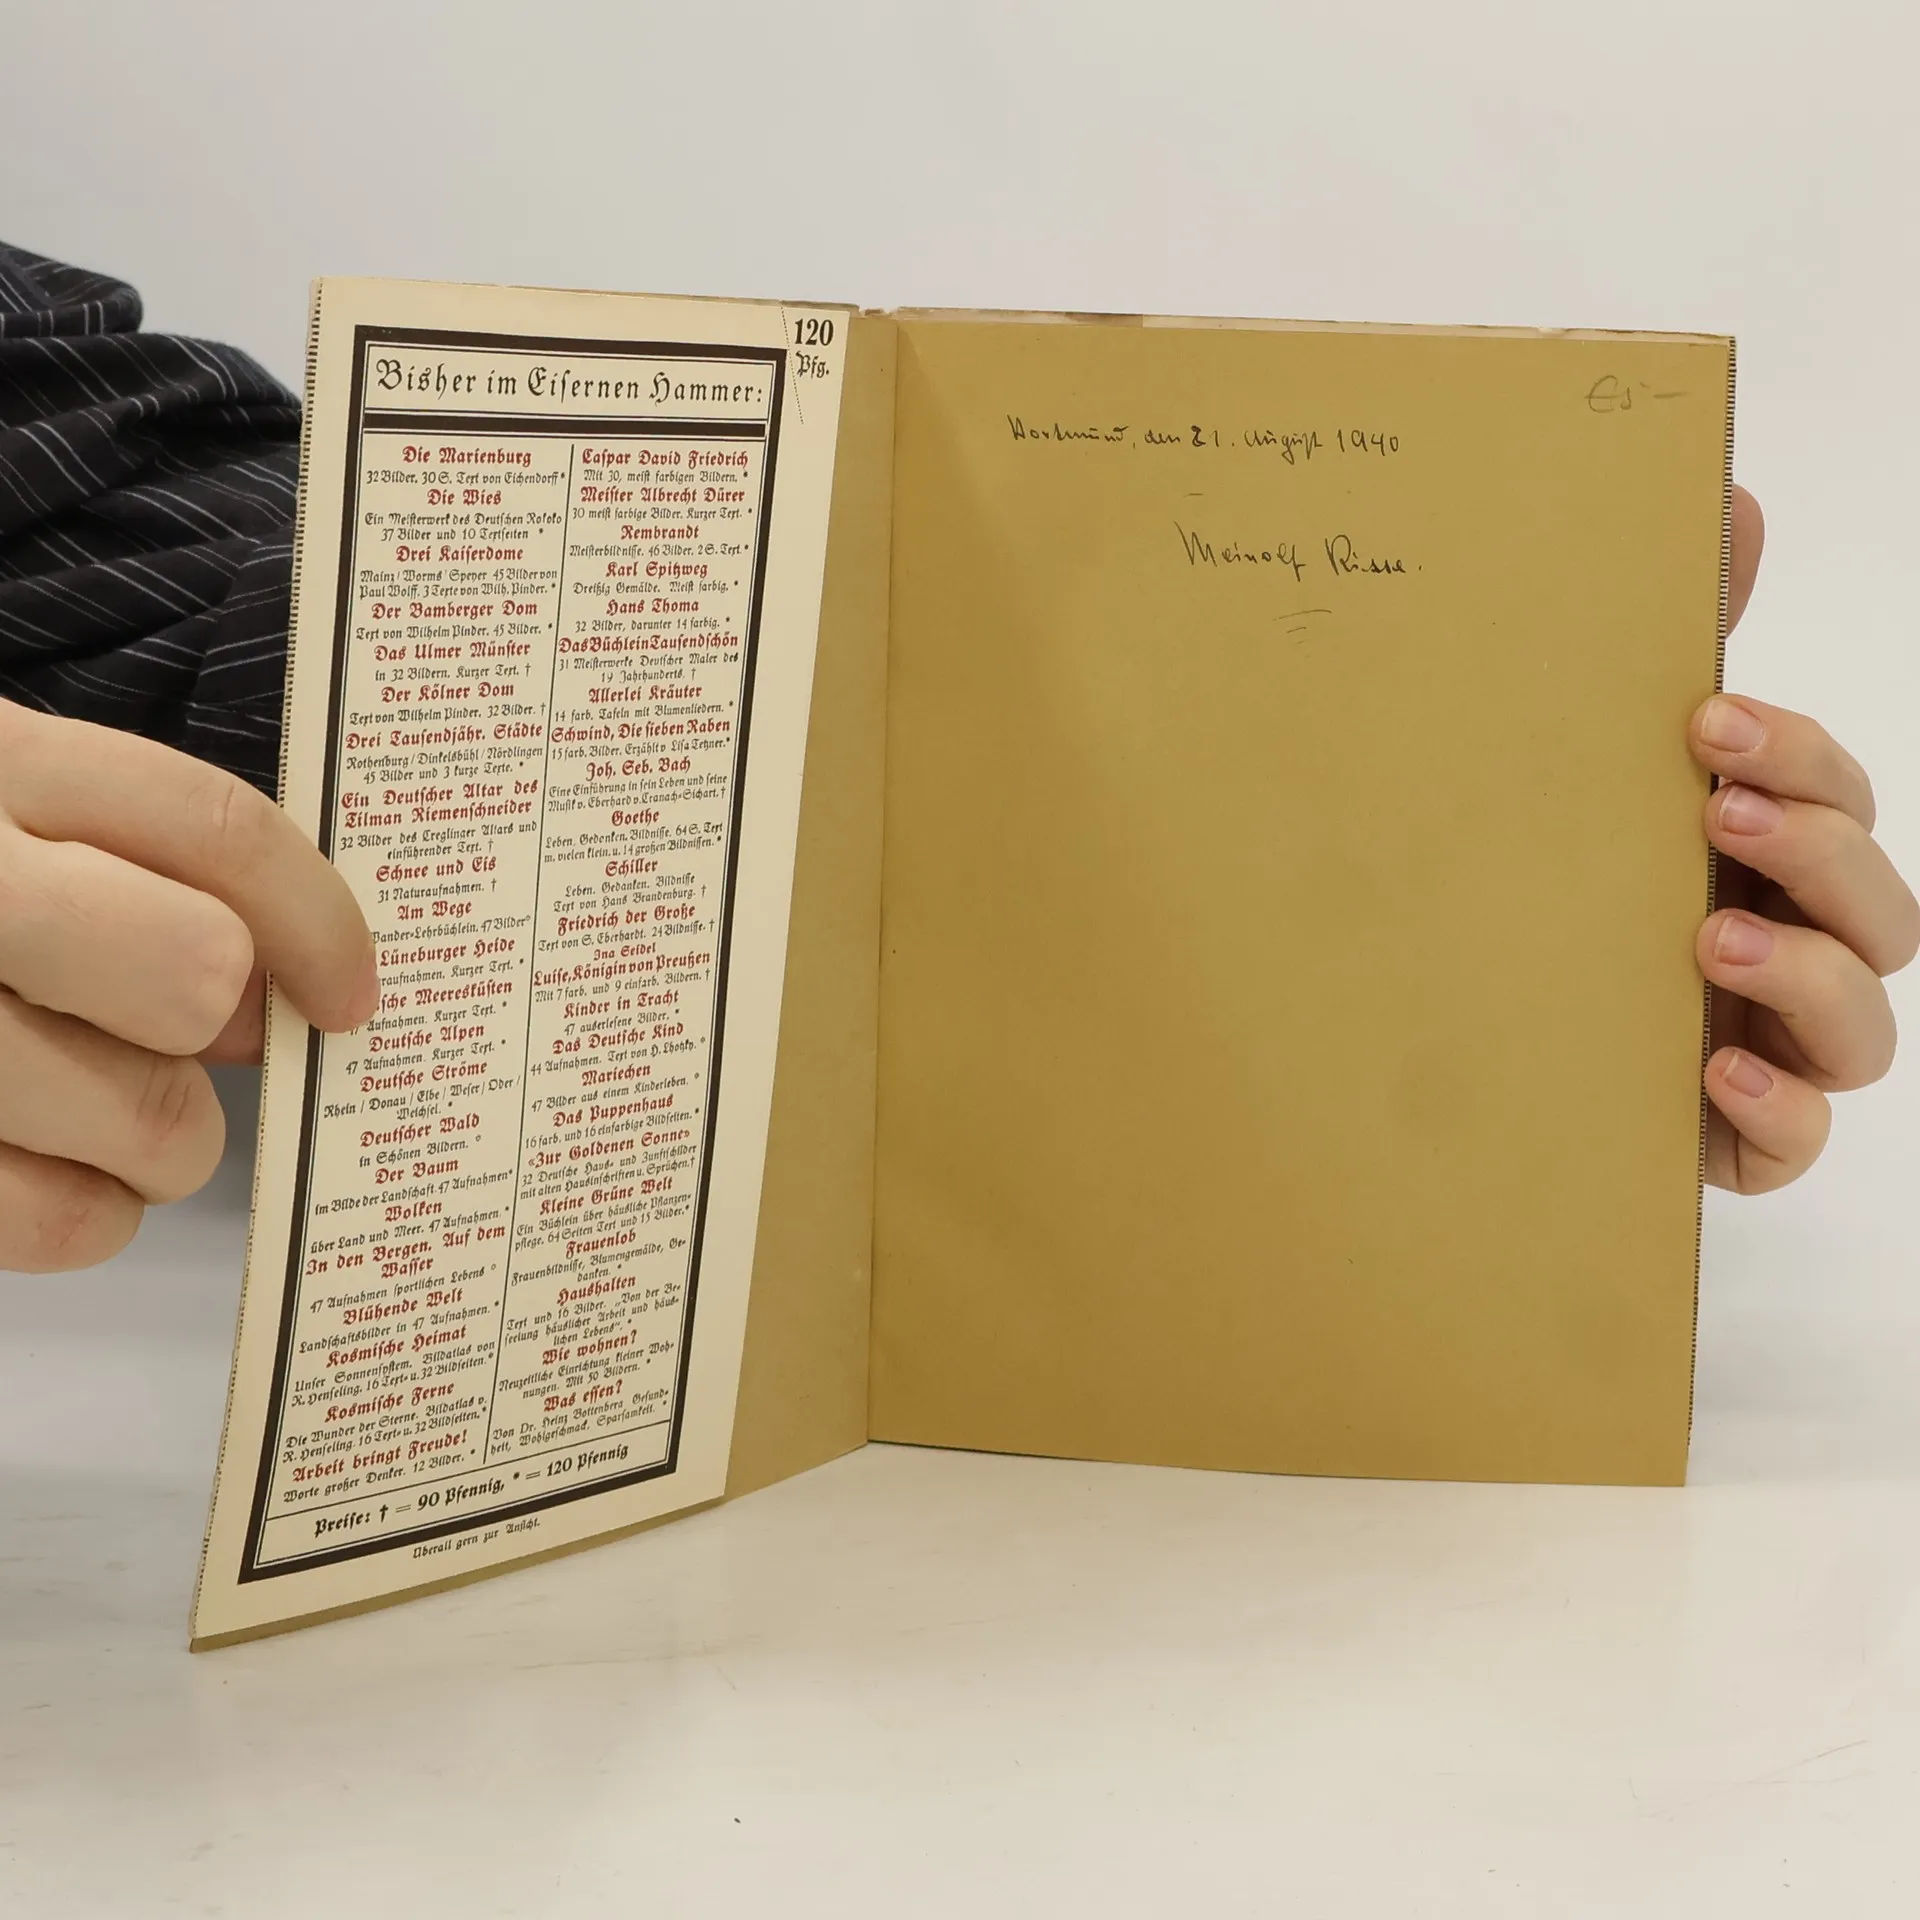 120
Pfg.
Bisher im Eisernen Hammer:
Die Marienburg
32 Bilder. 30 S. Text von Eichendorff *
Die Wies
Ein Meisterwerk des Deutschen Rokoko
37 Bilder und 10 Textseiten *
Drei Kaiserdome
Mainz / Worms / Speyer 45 Bilder von
Paul Wolff. 3 Texte von Wilh. Pinder. *
Der Bamberger Dom
Text von Wilhelm Pinder. 45 Bilder. *
Das Ulmer Münster
in 32 Bildern. Kurzer Text. †
Der Kölner Dom
Text von Wilhelm Pinder. 32 Bilder. †
Drei Tausendjähr. Städte
Rothenburg / Dinkelsbühl / Nördlingen
45 Bilder und 3 kurze Texte. *
Ein Deutscher Altar des
Tilman Riemenschneider
32 Bilder des Creglinger Altars und
einführender Text. †
Schnee und Eis
31 Naturaufnahmen. †
Am Wege
Wander=Lehrbüchlein. 47 Bilder°
Lüneburger Heide
raufnahmen. Kurzer Text. *
sche Meeresküsten
47 Aufnahmen. Kurzer Text. *
Deutsche Alpen
47 Aufnahmen. Kurzer Text. *
Deutsche Ströme
Rhein / Donau / Elbe / Weser / Oder /
Weichsel. *
Deutscher Wald
in Schönen Bildern. °
Der Baum
im Bilde der Landschaft. 47 Aufnahmen*
Wolken
über Land und Meer. 47 Aufnahmen. *
In den Bergen. Auf dem
Wasser
47 Aufnahmen sportlichen Lebens °
Blühende Welt
Landschaftsbilder in 47 Aufnahmen. *
Kosmische Heimat
Unser Sonnensystem. Bildatlas von
R. Henseling. 16 Text= u. 32 Bildseiten. *
Kosmische Ferne
Die Wunder der Sterne. Bildatlas v.
R. Henseling. 16 Text= u. 32 Bildseiten. *
Arbeit bringt Freude!
Worte großer Denker. 12 Bilder. *
Caspar David Friedrich
Mit 30, meist farbigen Bildern. *
Meister Albrecht Dürer
30 meist farbige Bilder. Kurzer Text. *
Rembrandt
Meisterbildnisse. 46 Bilder. 2 S. Text. *
Karl Spitzweg
Dreißig Gemälde. Meist farbig. *
Hans Thoma
32 Bilder, darunter 14 farbig. *
Das Büchlein Tausendschön
31 Meisterwerke Deutscher Maler des
19 Jahrhunderts. †
Allerlei Kräuter
14 farb. Tafeln mit Blumenliedern. *
Schwind, Die sieben Raben
15 farb. Bilder. Erzählt v Lisa Tetzner. *
Joh. Seb. Bach
Eine Einführung in sein Leben und seine
Musik v. Eberhard v. Cranach=Sichart. †
Goethe
Leben. Gedanken. Bildnisse. 64 S. Text
m. vielen klein. u. 14 großen Bildnissen. *
Schiller
Leben. Gedanken. Bildnisse
Text von Hans Brandenburg. †
Friedrich der Große
Text von S. Eberhardt. 24 Bildnisse. †
Ina Seidel
Luise, Königin von Preußen
Mit 7 farb. und 9 einfarb. Bildern. †
Kinder in Tracht
47 auserlesene Bilder. *
Das Deutsche Kind
44 Aufnahmen. Text von H. Lhotzky. °
Mariechen
47 Bilder aus einem Kinderleben. °
Das Puppenhaus
16 farb. und 16 einfarbige Bildseiten. *
«Zur Goldenen Sonne»
32 Deutsche Haus= und Zunftschilder
mit alten Hausinschriften u. Sprüchen. †
Kleine Grüne Welt
Ein Büchlein über häusliche Pflanzen=
pflege. 64 Seiten Text und 15 Bilder. *
Frauenlob
Frauenbildnisse, Blumengemälde, Ge=
danken. *
Haushalten
Text und 16 Bilder. „Von der Be=
seelung häuslicher Arbeit und häus=
lichen Lebens“. *
Wie wohnen?
Neuzeitliche Einrichtung kleiner Woh=
nungen. Mit 50 Bildern. *
Was essen?
Von Dr. Heinz Bottenberg Gesund=
heit, Wohlgeschmack, Sparsamkeit. *
Preise: † = 90 Pfennig, * = 120 Pfennig
Überall gern zur Ansicht.
€5 –
Dortmund, den 21. August 1940
Meinolf Risse.